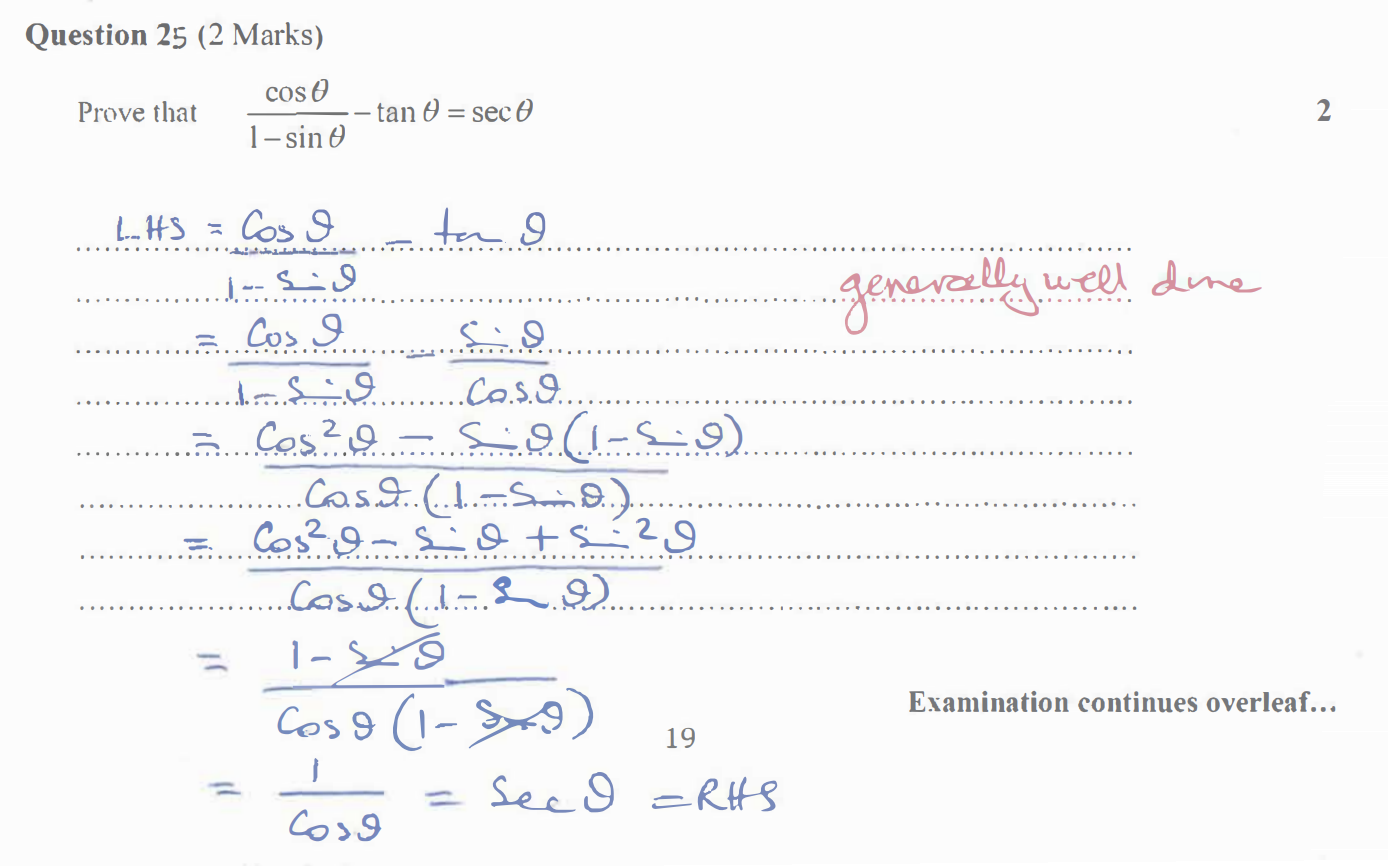 Question 25 (2 Marks)
Prove that cosθ/(1−sinθ) − tanθ = secθ 2
LHS = Cosθ/(1−sinθ) − tanθ
generally well done
= Cosθ/(1−sinθ) − sinθ/Cosθ
= (Cos²θ − sinθ(1−sinθ))/(Cosθ(1−sinθ))
= (Cos²θ − sinθ + sin²θ)/(Cosθ(1−sinθ))
= (1−sinθ)/(Cosθ(1−sinθ))
Examination continues overleaf...
19
= 1/Cosθ = Secθ = RHS